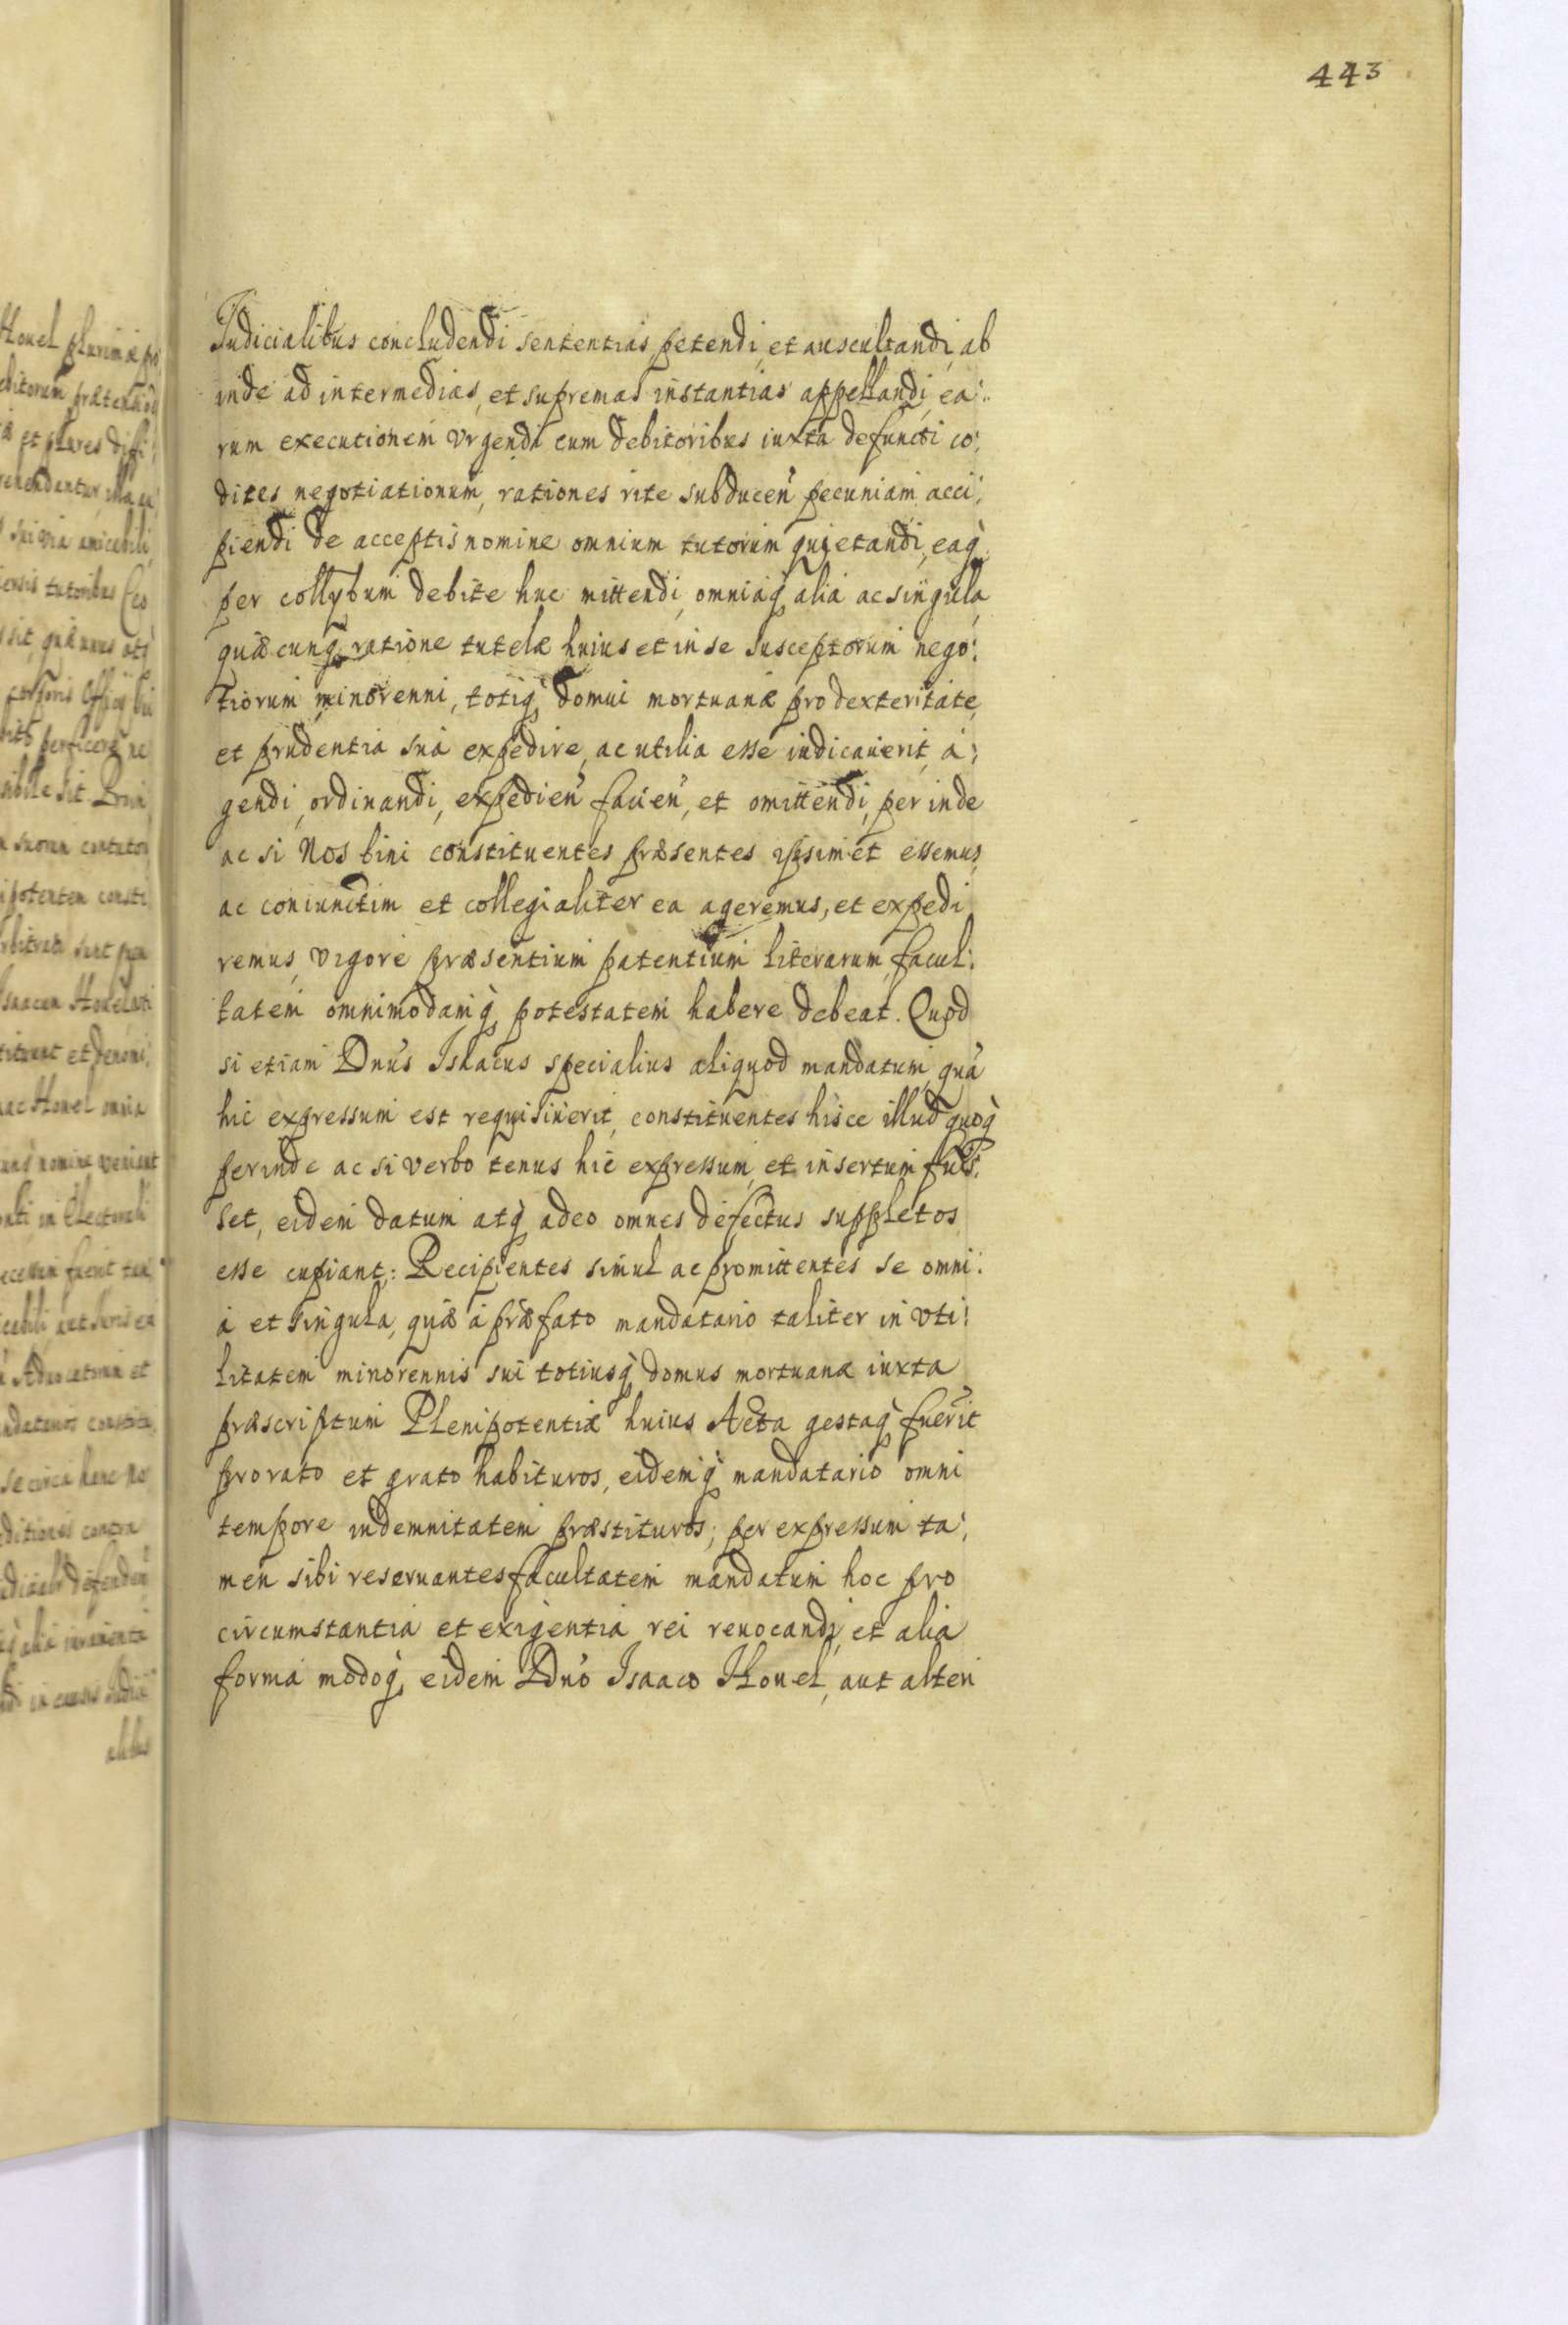 443
Judicialibus concludendi sententias, petendi, et auscultandi, ab
inde ad intermedias, et supremas instantias appellandi, ea:
rum executionem vrgendi cum debitoribus iuxta defuncti co:
dites negotiationum, rationes rite subducen̄ pecuniam acci:
piendi de acceptis nomine omnium tutorum quietandi, eaq̀
per collybum debite huc mittendi, omniaq̀ alia ac singula,
quæcunq̀ ratione tutelæ huius et in se susceptorum nego:
tiorum minorenni, totiq̀ domui mortuanæ pro dexteritate,
et prudentia suà expedire, ac utilia esse iudicauerit, a:
gendi, ordinandi, expedien̄ facien̄, et omittendi, per inde
ac si Nos bini constituentes præsentes ipsimet essemus,
ac coniunctim et collegialiter ea ageremus, et expedi
remus, vigore præsentium patentium literarum, facul:
tatem omnimodamq̀ potestatem habere debeat. Quod
si etiam Dnūs Isaacus specialius aliquod mandatum, quā
hic expressum est requisiuerit, constituentes hisce illud quoq̀
perinde ac si verbo tenus hic expressum, et insertum fuis:
set, eidem datum atq̀ adeo omnes defectus suppletos
esse cupiant: Recipientes simul ac promittentes se omni:
a et singula, quæ à præfato mandatario taliter in vti:
litatem minorennis sui totiusq̀ domus mortuanæ iuxta
præscriptum Plenipotentiæ huius Acta gestaq̀ fuerīt
pro rato et grato habituros, eidemq̀ mandatario omni
tempore indemnitatem præstituros; per expressum ta:
men sibi reseruantes facultatem mandatum hoc pro
circumstantia et exigentia rei reuocandi, et alia
formà modoq̀, eidem Dnō Isaaco Houel, aut alteri